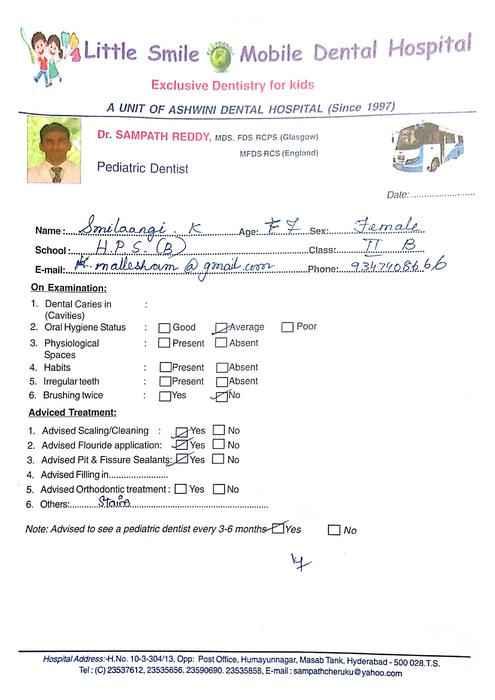 Little Smile Mobile Dental Hospital
Exclusive Dentistry for kids
A UNIT OF ASHWINI DENTAL HOSPITAL (Since 1997)
Dr. SAMPATH REDDY, MDS. FDS RCPS (Glasgow)
MFDS RCS (England)
Pediatric Dentist
Date:
Name: Smilaangi . K Age: 7 Sex: Female
School: H.P.S. (B) Class: II B
E-mail: K.mallesham@gmail.com Phone: 9347408666
On Examination:
1. Dental Caries in :
(Cavities)
2. Oral Hygiene Status : Good Average Poor
3. Physiological : Present Absent
Spaces
4. Habits : Present Absent
5. Irregular teeth : Present Absent
6. Brushing twice : Yes No
Adviced Treatment:
1. Advised Scaling/Cleaning : Yes No
2. Advised Flouride application: Yes No
3. Advised Pit & Fissure Sealants: Yes No
4. Advised Filling in
5. Advised Orthodontic treatment : Yes No
6. Others: Stain
Note: Advised to see a pediatric dentist every 3-6 months Yes No
Hospital Address:-H.No. 10-3-304/13, Opp: Post Office, Humayunnagar, Masab Tank, Hyderabad - 500 028.T.S.
Tel : (C) 23537612, 23535656, 23590690. 23535858, E-mail : sampathcheruku@yahoo.com